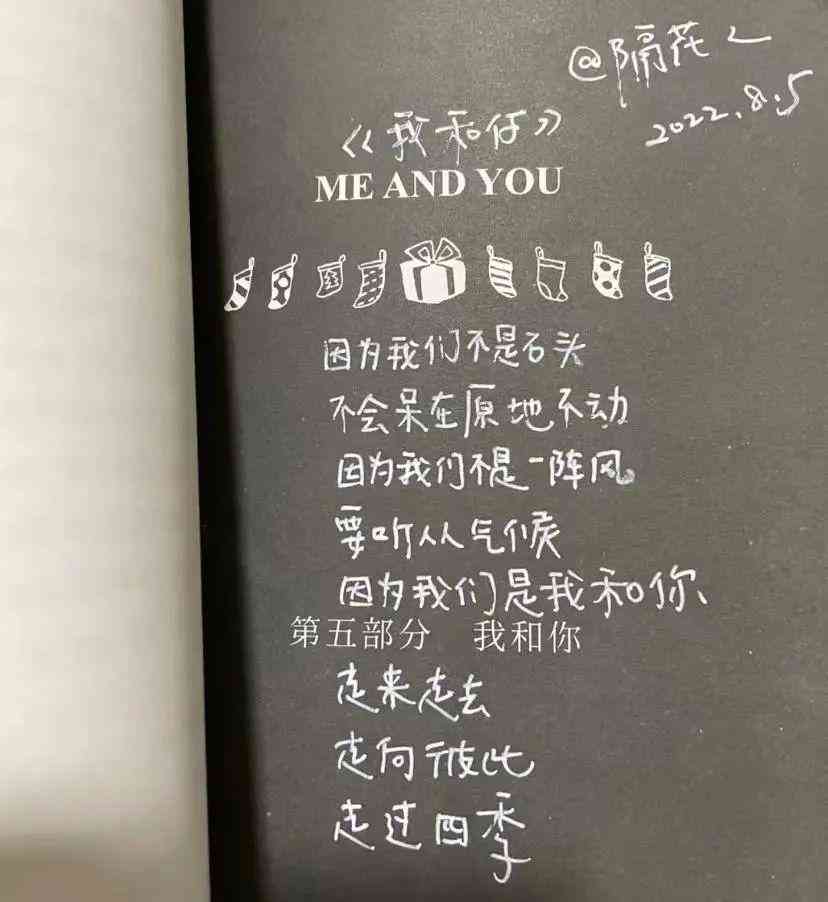 @隔花人
2022.8.5
《我和你》
ME AND YOU
因为我们不是石头
不会呆在原地不动
因为我们不是一阵风。
要听从气候
因为我们是我和你、
第五部分 我和你
走来走去
走向彼此
走过四季